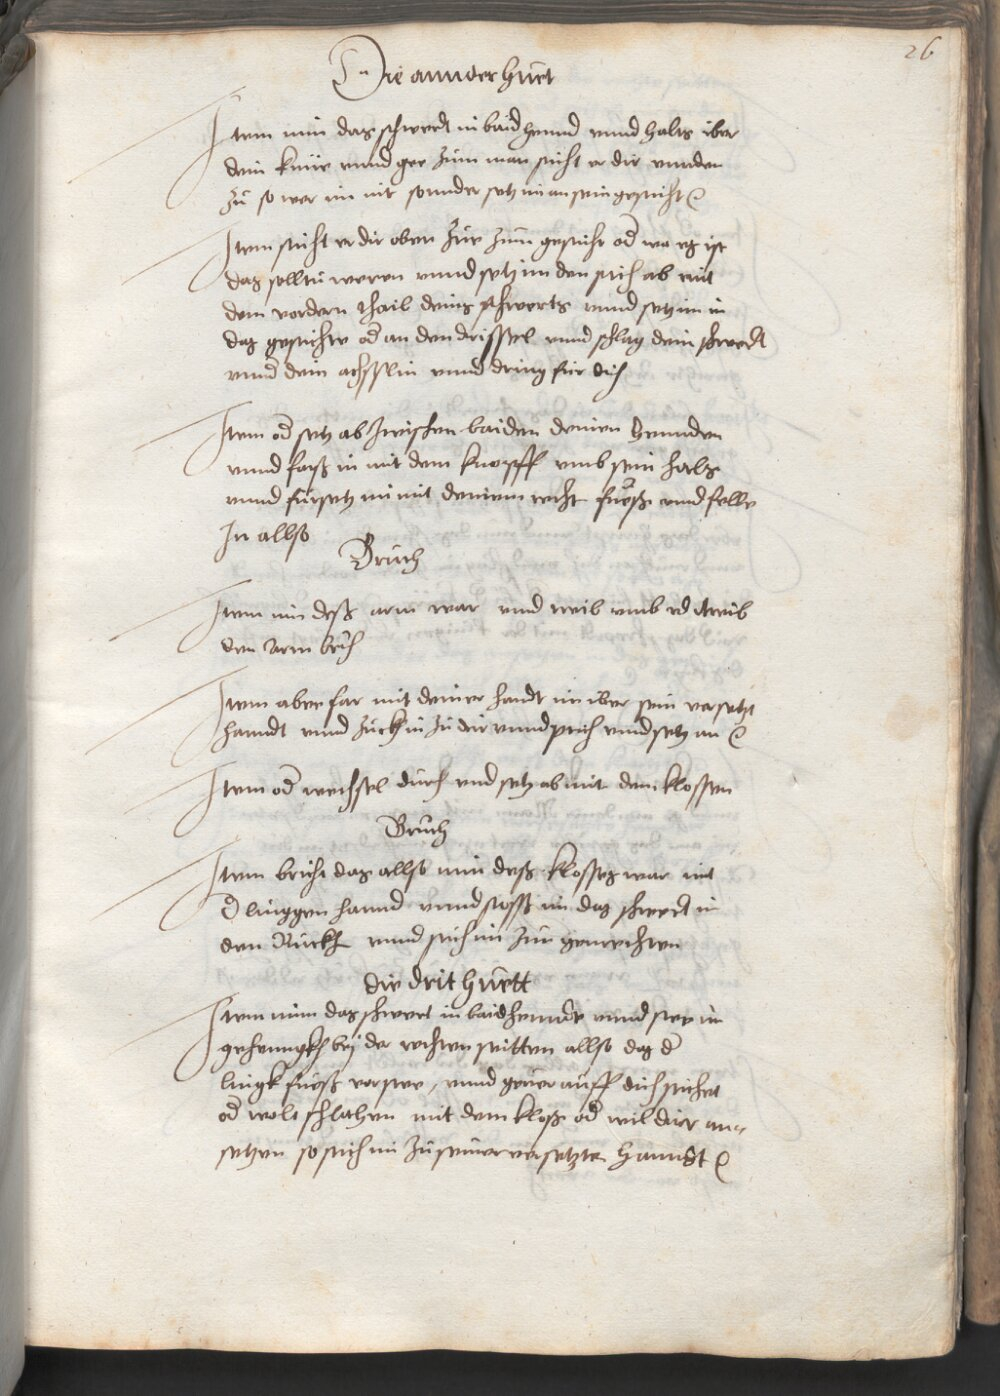 26
Die annder huet
Item nim das schwerdt in baid hennd vnnd halts iber
dein knüe vnnd gee zum man sticht er dir vnnden
zu so wer im nit sonnder setz im an sein gesicht
Item sticht er dir oben zue zum gesicht od wa es ist
das solltu weren vnnd setz im den stich ab mit
dem vordern thail deins schwerts vnnd setz im in
das gesichte od an den drissel vnnd schlag dein schwerdt
vnnd dein achsslin vnnd dring für dich
Item od setz ab zwischen baiden deinen hennden
vnnd fass in mit dem knopff vmb sein hals
vnnd fürsetz im mit deinem recht fuess vnnd felle
In allso
Bruch
Item nim dess arm war vnd reib vmb od treib
den arm bruch
Item aber far mit deiner handt im iber sein versetzt
hanndt vnnd zuckh in zu dir vnnd prich vnnd setz an
Item od wechsel durch vnd setz ab mit dem klossen
Bruch
Item bricht das allso nim dess klosses war mit
d linggen hannd vnnd stosst im das schwerdt in
den Rückh vnnd stich im zue gemechten
die drit huett
Item nim das schwert in baid hennde vnnd stee in
gehenngkh bej der rechten seitten allso das d
lingk fuess vorstee, vnnd gewer auff dich stichet
od wolt schlahen mit dem kloss od wil dier an-
setzen so stich im zu seiner versetzte hanndt